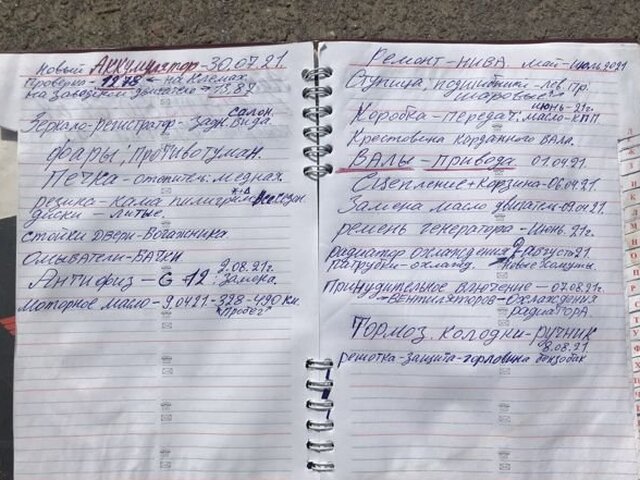 Новый Аккумулятор-30.07.21.
Проверка-12.78-на клемах
на заводском двигателе-13.87
салон.
Зеркало-регистратор-Задн. Вида.
фары; Противотуман.
Печка-отопител: медная.
резина-кама пилигрим Всесезон.
диски-литые.
стойки двери-Богажника
Омыватели-БАЧКИ
2.08.21г.
Антифиз-G 12. Замена.
Моторное масло-9.04.21-328-490 км.
"Пробег"
Ремонт-НИВА май-июль 2021
Ступица, подшипники-лев. пр.
шаровые
июнь-21г.
Коробка-Передач, масло-КПП
Крестовина Карданного Вала.
ВАЛЫ-Привода 01.04.21.
Сцепление+Карзина-06.04.21.
Замена масло двигател-09.04.21.
ремень генератора-Июнь.21г.
радиатор охлаждения 2-август 21
патрубки-охлажд. Новые хомуты.
Принудительное включение-07.08.21г.
-Вентиляторов-Охлаждения
радиатора.
Тормоз. колодки-ручник
8.08.21
решотка-защита-горловина бензобак